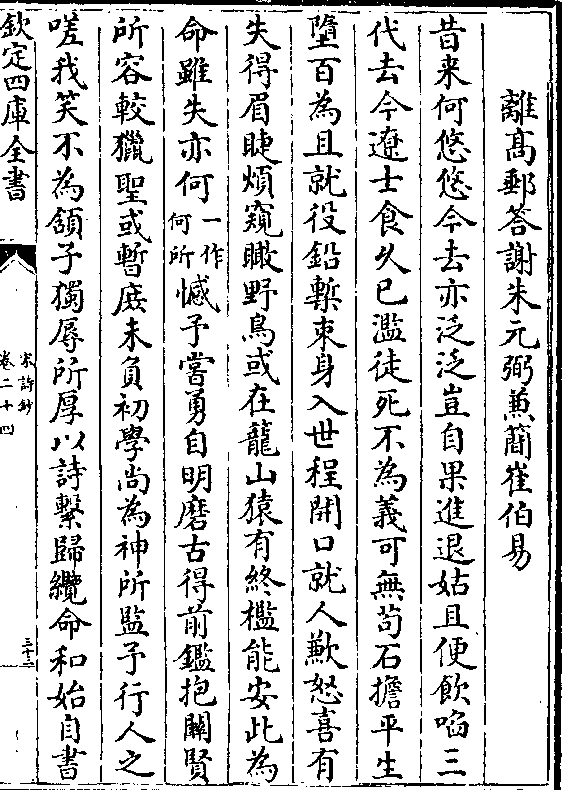 離髙郵答謝朱元弼兼簡崔伯易
昔来何悠悠今去亦泛泛豈自果進退姑且便飲啗三
代去今遼士食久已濫徒死不為義可無苟石擔平生
墮百為且就役鉛槧束身入世程開口就人歉怒喜有
失得眉睫煩窺瞰野鳥或在龍山猿有終檻能安此為
命雖失亦何一作何所憾予嘗勇自明磨古得前鑑抱關賢
所容較獵聖或暫庶未負初學尚為神所監予行人之
嗟我笑不為頷子獨辱所厚以詩繫歸纜命和始自書
欽定四庫全書
宋詩鈔
卷二十四
三十三